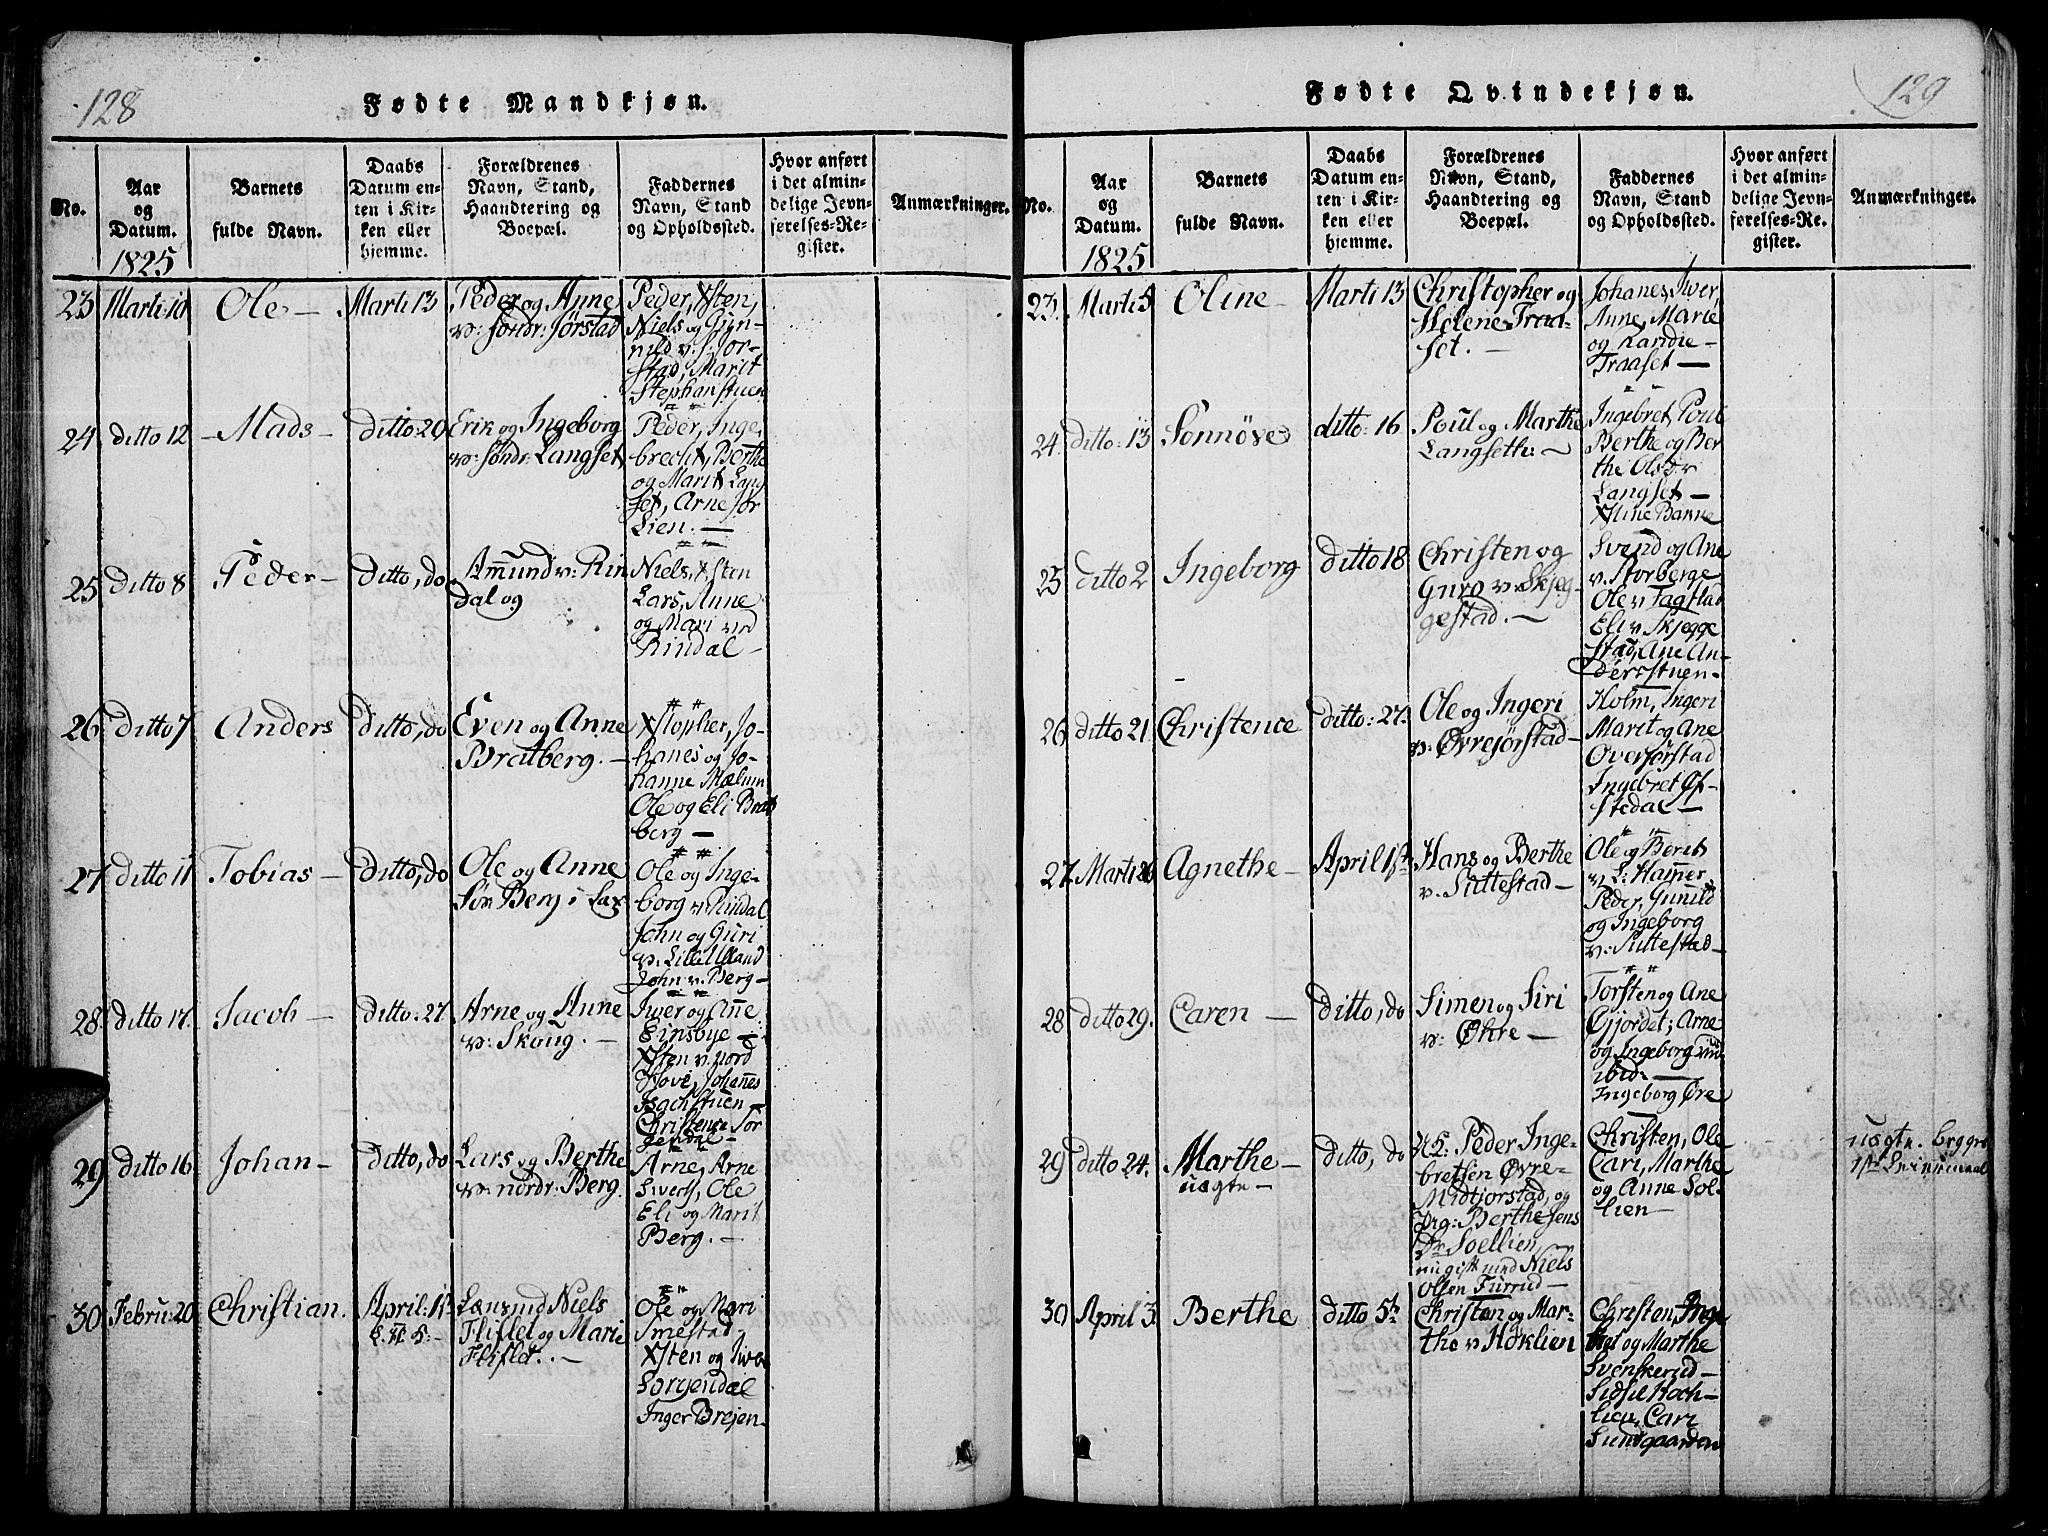 128
Fødte Mandkjøn.
No.
Aar
og
Datum.
1825
Barnets
fulde Navn.
Daabs
Datum en-
ten i Kir-
ken eller
hjemme.
Forældrenes
Navn, Stand,
Haandtering og
Boepæl.
Faddernes
Navn, Stand
og Opholdssted.
Hvor anført
i det almin-
delige Jevn-
førelses-Re-
gister.
Anmærkninger.
23
Marti: 10
Ole —
Marti 13
Peder og Anne
v: søndr: Jørstad
Peder, Xsten,
Niels og Gun-
nild v: s: Jør-
stad, Marit
Stephanstuen
24
ditto 12
Mads —
ditto: 20
Erik og Ingeborg
v: søndr: Langset
Peder, Inge
brecht, Berthe
og Marit Lang
set, Arne Sør
Lien. —
25
ditto 8
Peder —
ditto, do
Amund v: Rin
dal og
Niels, Xsten
Lars, Anne
og Mari ved
Rindal —
26
ditto 7
Anders
ditto, do
Even og Anne
Bratberg. —
Xstopher, Jo-
hanes og Jo-
hanne Mælum
Ole og Eli Brat
berg —
27
ditto 11
Tobias —
ditto, do
Ole og Anne
Sør Berg i Lax
Ole og Inge-
borg v: Rindal
John og Guri
v: Litell Uland
John v: Berg —
28
ditto 17.
Jacob —
ditto: 27.
Arne og Anne
v: Skoug. —
Iwer og Ane
Einsbye —
Xsten v: nord
Hove, Johannes
Bachstuen —
Christence Sør
gendal —
29
ditto 16
Johan —
ditto, do
Lars og Berthe
v: nordr: Berg.
Arne, Arne
Swert, Ole
Eli og Marit
Berg. —
30
Febru: 20
Christian.
April: 1st
Niels
Fliflet og Marie
Fliflet. —
Ole og Mari
Smestad
Xsten og Iwer
Sørgendal
Inger Brejen —
129
Fødte Qvindekjøn.
No.
Aar
og
Datum.
1825
Barnets
fulde Navn.
Daabs
Datum en-
ten i Kir-
ken eller
hjemme.
Forældrenes
Navn, Stand,
Haandtering og
Boepæl.
Faddernes
Navn, Stand
og Opholdssted.
Hvor anført
i det almin-
delige Jevn-
førelses-Re-
gister.
Anmærkninger.
23.
Marti 5
Oline —
Marti 13
Christopher og
Helene Traa-
set. —
Johanes, Iver,
Anne, Marie
og Randie —
Traaset —
24.
ditto: 13
Sønnøve
ditto: 16
Poul og Marthe
Langseth: —
Ingebret, Poul
Berthe og Ber
the Olsdr
Langset —
Xstine Banne
25
ditto 2
Ingeborg
ditto 18
Christen og
Guro v: Skjeg-
gestad. —
Svend og Ane
v: Storberge
Ole v Fagstad
Eli v Skjegge
stad, Ane An-
dersstuen —
26
ditto 21
Christence
ditto: 27.
Ole og Ingeri
v: Øvrejørstad —
Holm, Ingeri
Marit og Ane
Overjørstad
Ingebret Øf-
stedal —
27
Marti 26
Agnethe —
April 1ste
Hans og Berthe
v: Suttestad —
Ole og Berit
v: L: Hamer
Peder, Gunild
og Ingeborg
v: Suttestad —
28
ditto 29.
Caren —
ditto, do
Simen og Siri
v: Øhre —
Torsten og Ane
Gjordet; Arne
og Ingeborg
ibid: —
Ingeborg Øre
29
ditto 24.
Marthe —
uægte —
ditto, do
Peder Inge-
bretsen Øvre-
Midtjørstad, og
Pig: Berthe Jens
Dr Soellien,
nu gift med Niels
Olsen Furrud —
Christen, Ole
Cari, Marthe
og Anne Sol-
lien —
uægte. begges
1ste Leiermaal
30
April 3
Berthe
ditto 5te
Christen og Mar-
the v Høklien
Christen, Inge
bret og Marthe
Svenskerud —
Sidsil Hoch-
lien, Cari
Sundgaarden